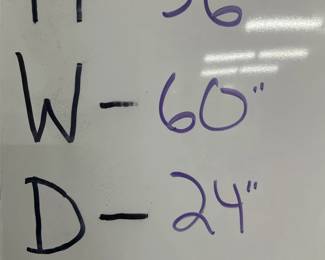 W - 60"
D - 24"